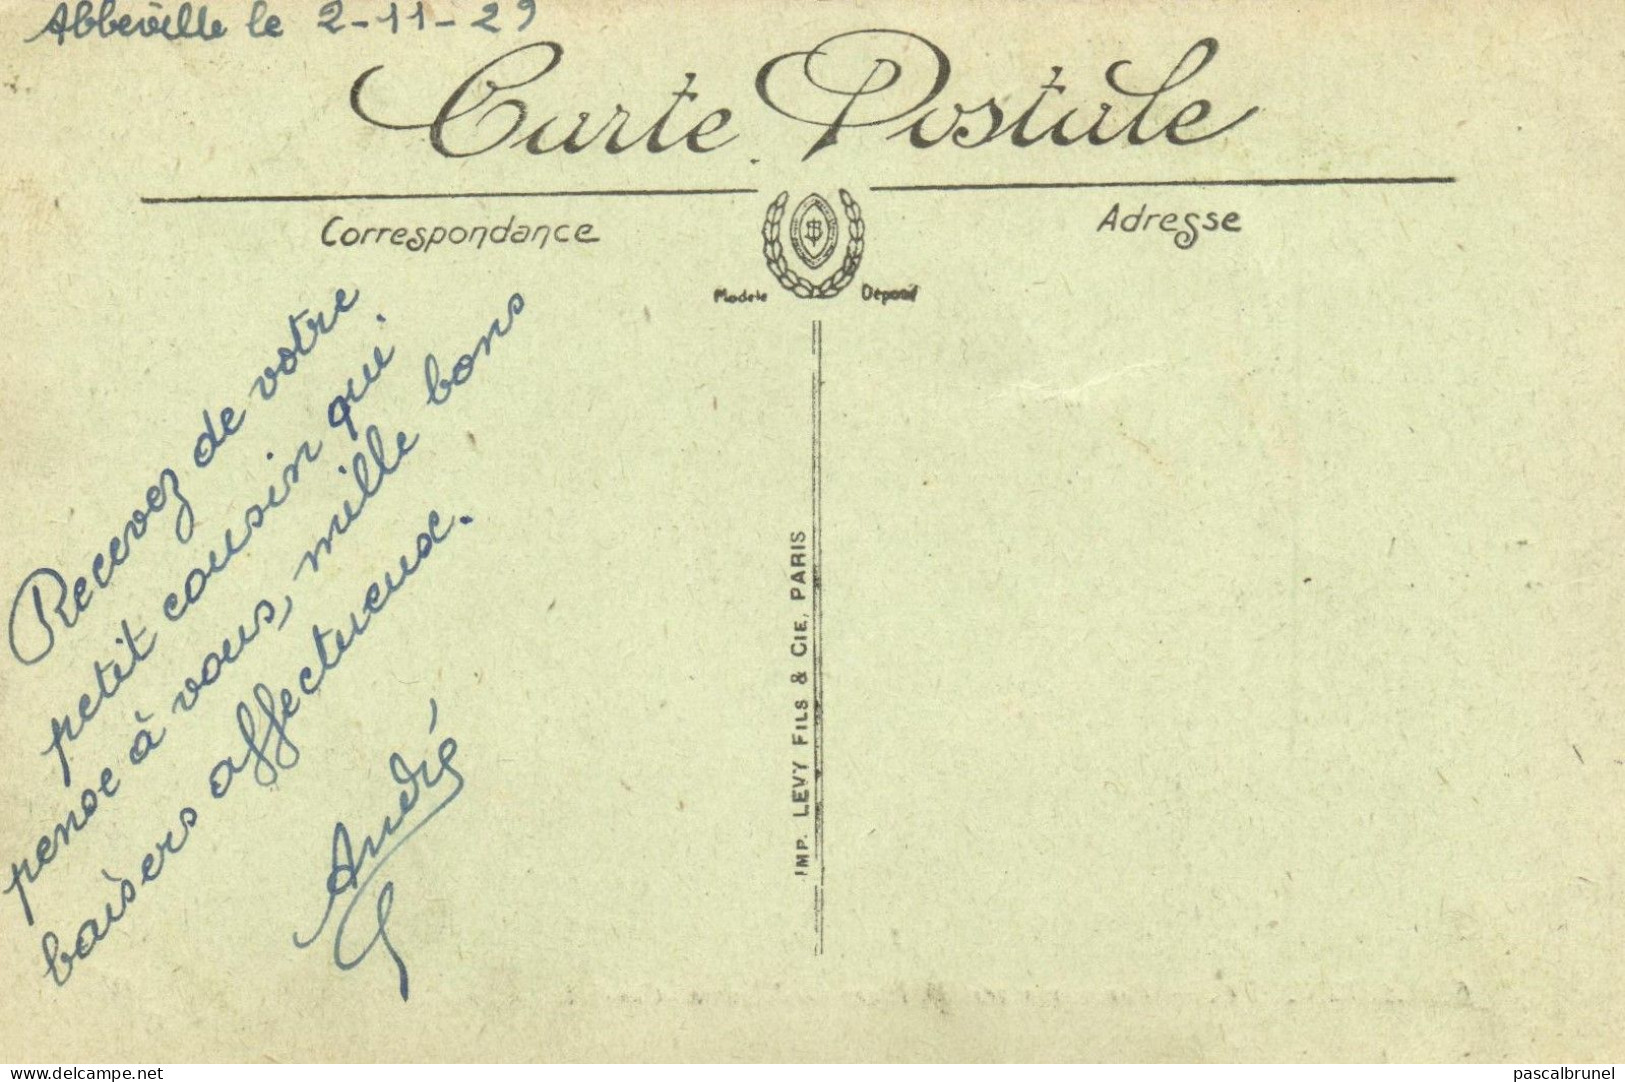 Abbeville le 2-11-29
Carte Postale
Correspondance
Adresse
Modèle Déposé
Recevez de votre
petit cousin qui
pense à vous, mille bons
baisers affectueux.
André
IMP. LEVY FILS & CIE, PARIS
www.delcampe.net
pascalbrunel